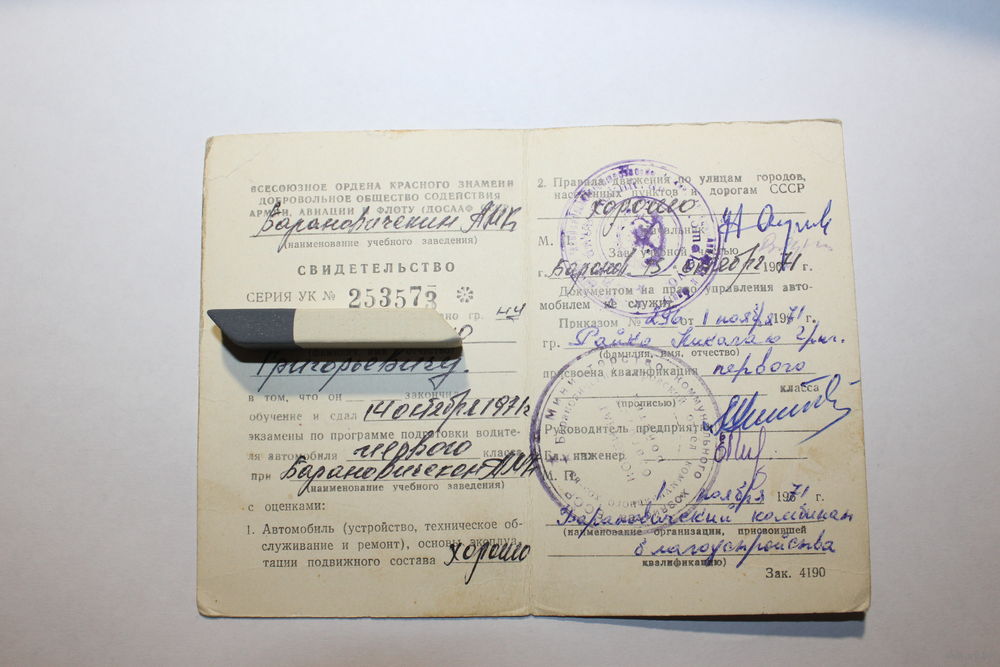 ВСЕСОЮЗНОЕ ОРДЕНА КРАСНОГО ЗНАМЕНИ
ДОБРОВОЛЬНОЕ ОБЩЕСТВО СОДЕЙСТВИЯ
АРМИИ, АВИАЦИИ И ФЛОТУ (ДОСААФ
Барановичский АМК
(наименование учебного заведения)
СВИДЕТЕЛЬСТВО
СЕРИЯ УК № 253573
но гр.
Григорьевичу
в том, что он закончил
обучение и сдал 14 октября 1971 г.
экзамены по программе подготовки водите-
ля автомобиля первого класса
при Барановичском АМК
(наименование учебного заведения)
с оценками:
1. Автомобиль (устройство, техническое об-
служивание и ремонт), основы эксплуа-
тации подвижного состава хорошо
2. Правила движения по улицам городов,
населенных пунктов и дорогам СССР
хорошо
М. П. Начальник
Зав. учебной частью
г. Баранов. октября 1971 г.
Документом на право управления авто-
мобилем не служит.
Приказом № 296 от 1 ноября 1971 г.
гр. Райко Николаю Григ.
(фамилия, имя, отчество)
присвоена квалификация первого
(прописью) класса
Руководитель предприят
Гл. инженер
М. П.
1 ноября 1971 г.
Барановичский комбинат
(наименование организации, присвоившей
благоустройства
квалификацию)
Зак. 4190